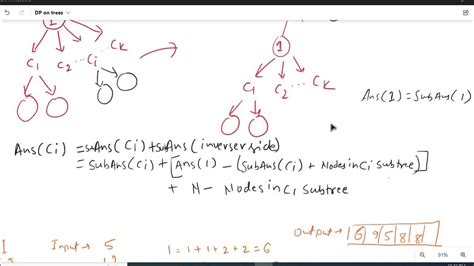 DP on trees
1
C1 C2 ... Ci ... CK
1
Ci C2 ... CK
Ans(1) = SubAns(1)
Ans(Ci) = SubAns(Ci) + SubAns(inverserside)
= SubAns(Ci) + [Ans(1) - (SubAns(Ci) + Nodes in Ci subtree)]
+ N - Nodes in Ci subtree
Output → 6 9 5 8 8
Input → 5
1 = 1 + 1 + 2 + 2 = 6
91%